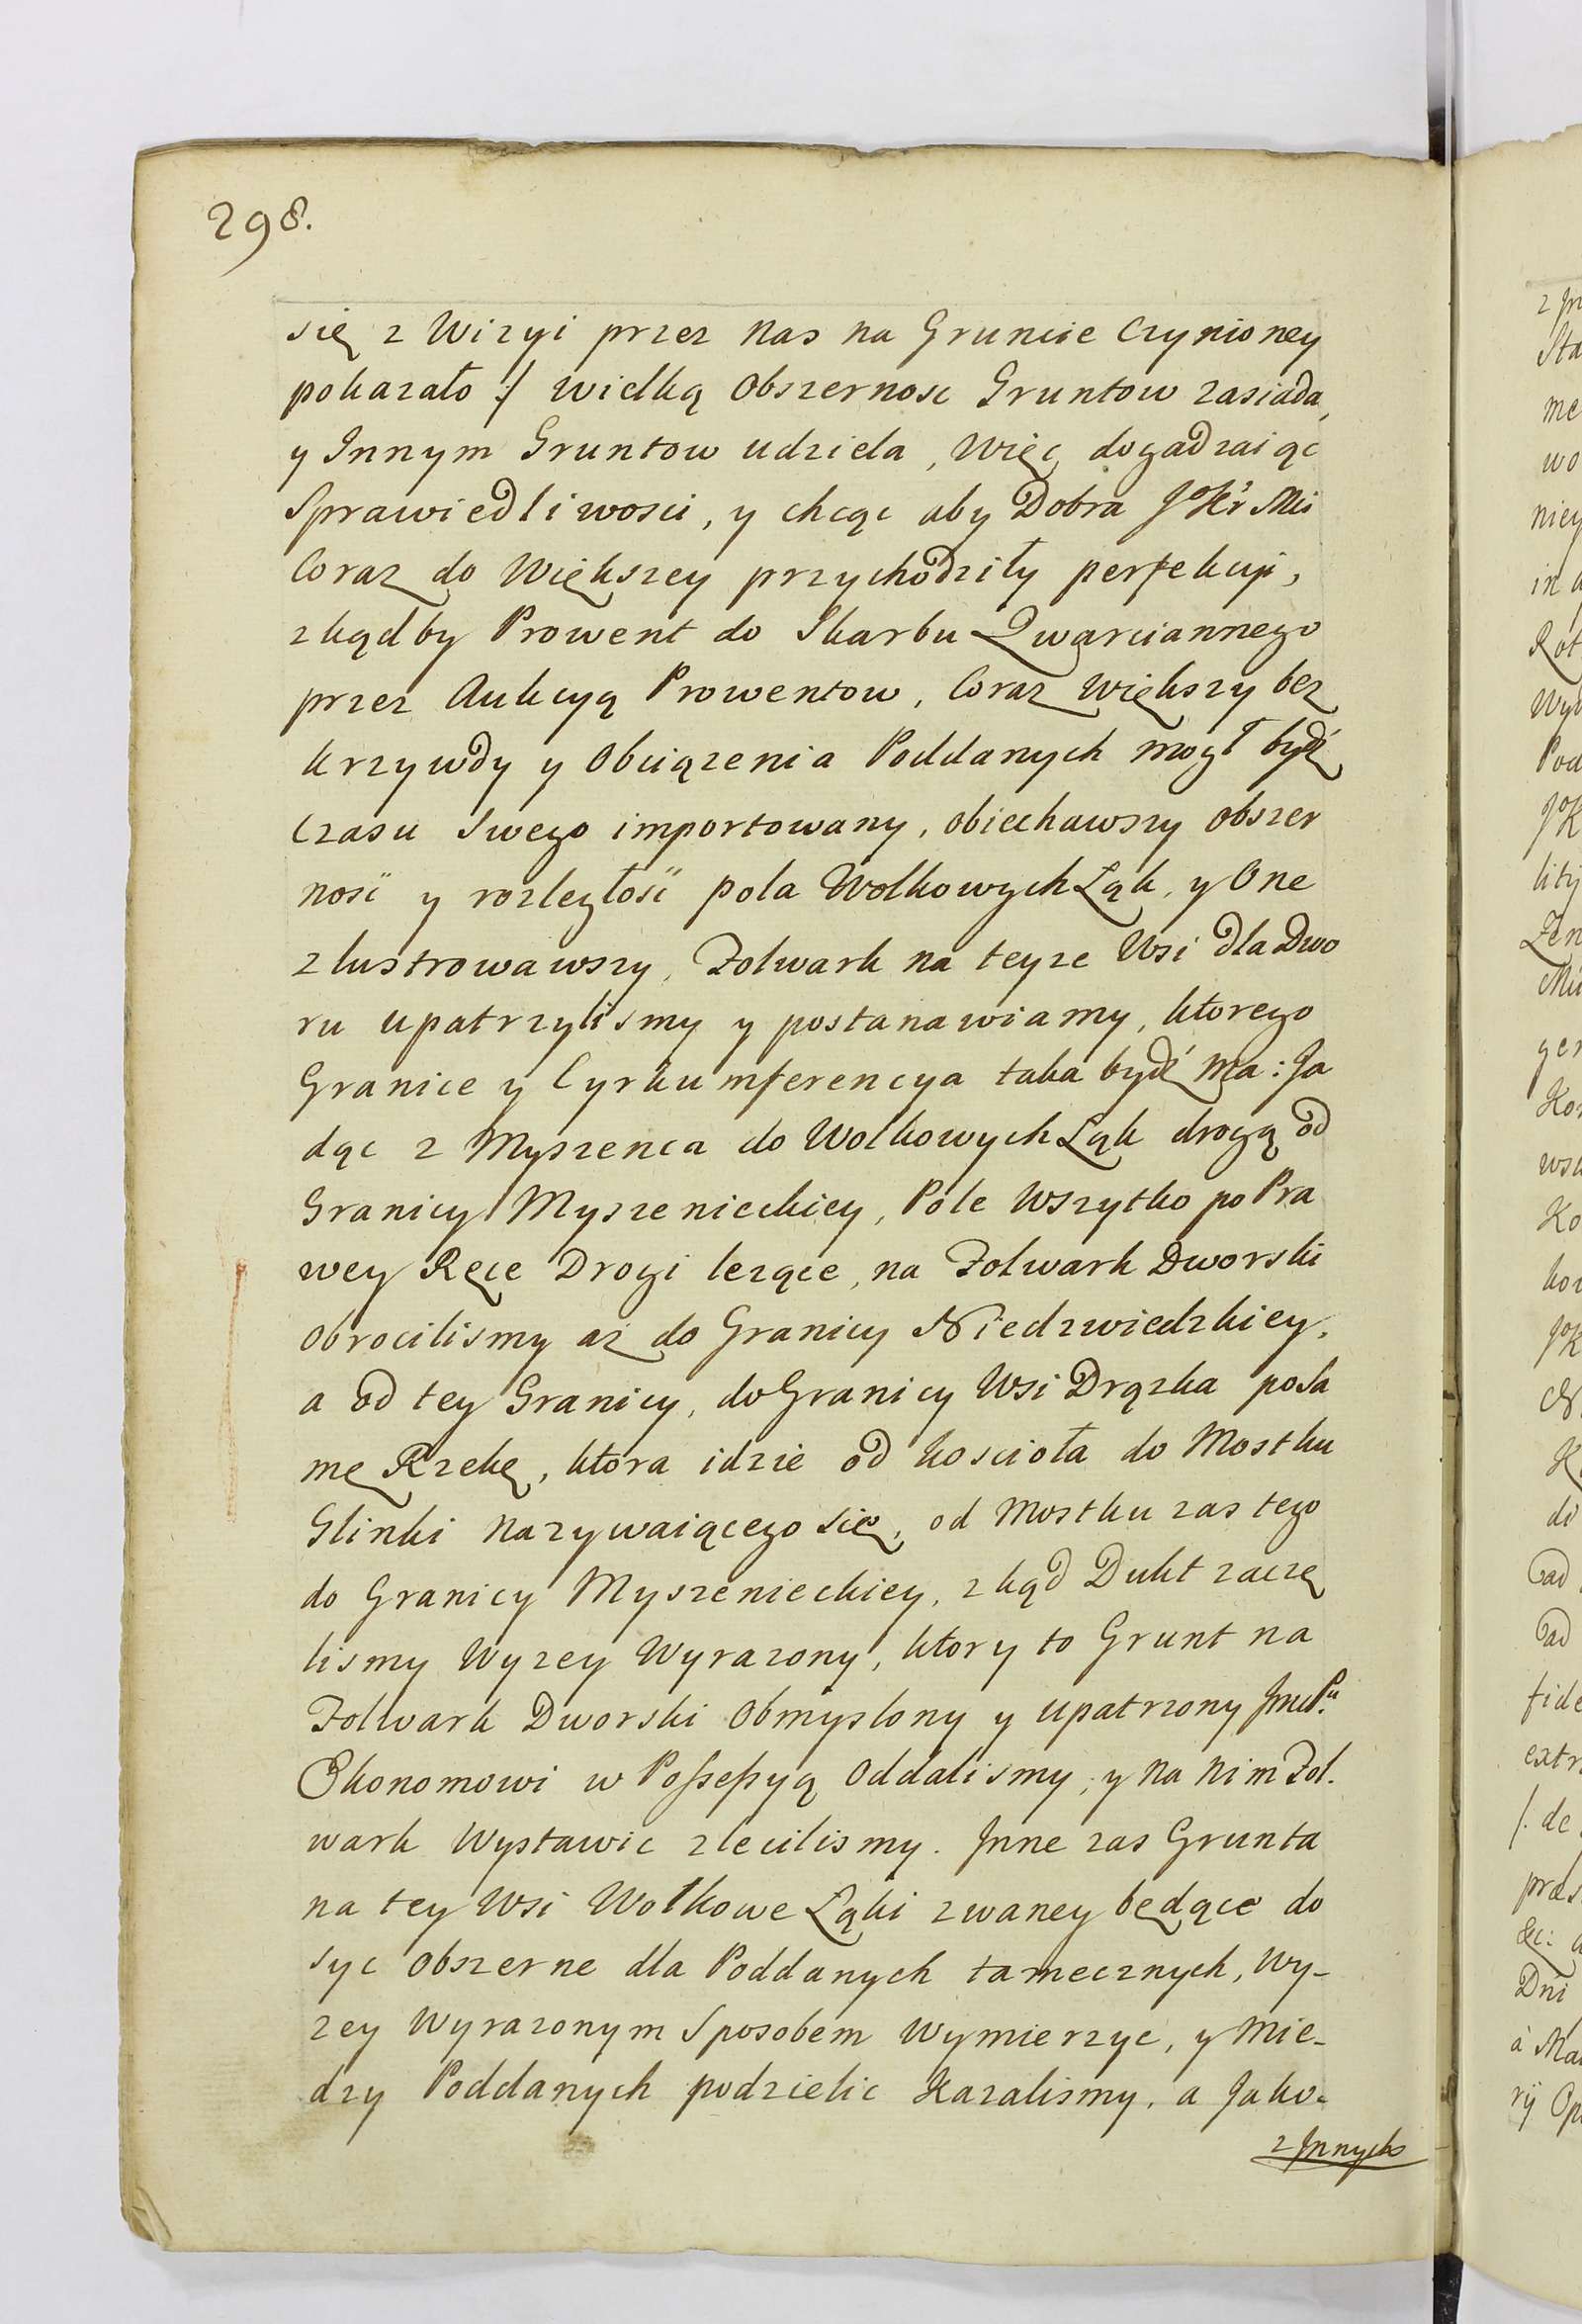 298.
się z Wizyi przez Nas na Gruncie Czynioney
pokazało :/ wielką Obszernosc Gruntow zasiada,
y Innym Gruntow udziela, Więc dogadzaiąc
Sprawiedliwosci, y chcąc aby Dobra JoKr Mci
Coraz do Większey przychodziły perfekcyi,
zkądby Prowent do Skarbu Qwarciannego
przez Aukcyą Prowentow, Coraz Większy bez
krzywdy y Obciązenia Poddanych mogł bydź
Czasu Swego importowany, obiechawszy obszer
nosć y rozległosć pola Wolkowych Łąk, y One
zlustrowawszy, Folwark na teyze Wsi dla Dwo
ru upatrzylismy y postanawiamy, ktorego
Granice y Cyrkumferencya taka bydź ma: Ja
dąc z Myszenca do Wolkowych Łąk drogą od
Granicy Myszenieckiey, Pole Wszytko po Pra
wey Ręce Drogi lezące, na Folwark Dworski
obrocilismy az do Granicy Niedzwiedzkiey,
a od tey Granicy, do Granicy Wsi Drązka po Sa
mę Rzekę, ktora idzie od kościoła do Mostku
Glinki Nazywaiącego się, od Mostku zas tego
do Granicy Myszenieckiey, zkąd Dukt zaczę
lismy Wyzey Wyrazony, ktory to Grunt na
Folwark Dworski Obmyslony y upatrzony JmćPu
Ekonomowi w Possessyą Oddalismy, y na nim Fol.
wark Wystawic zlecilismy. Inne zas Grunta
na tey Wsi Wołkowe Łąki zwaney będące do
syc Obszerne dla Poddanych tamecznych, Wy-
zey Wyrazonym Sposobem Wymierzyc, y Mie-
dzy Poddanych podzielic Kazalismy, a Jako-
z Innych